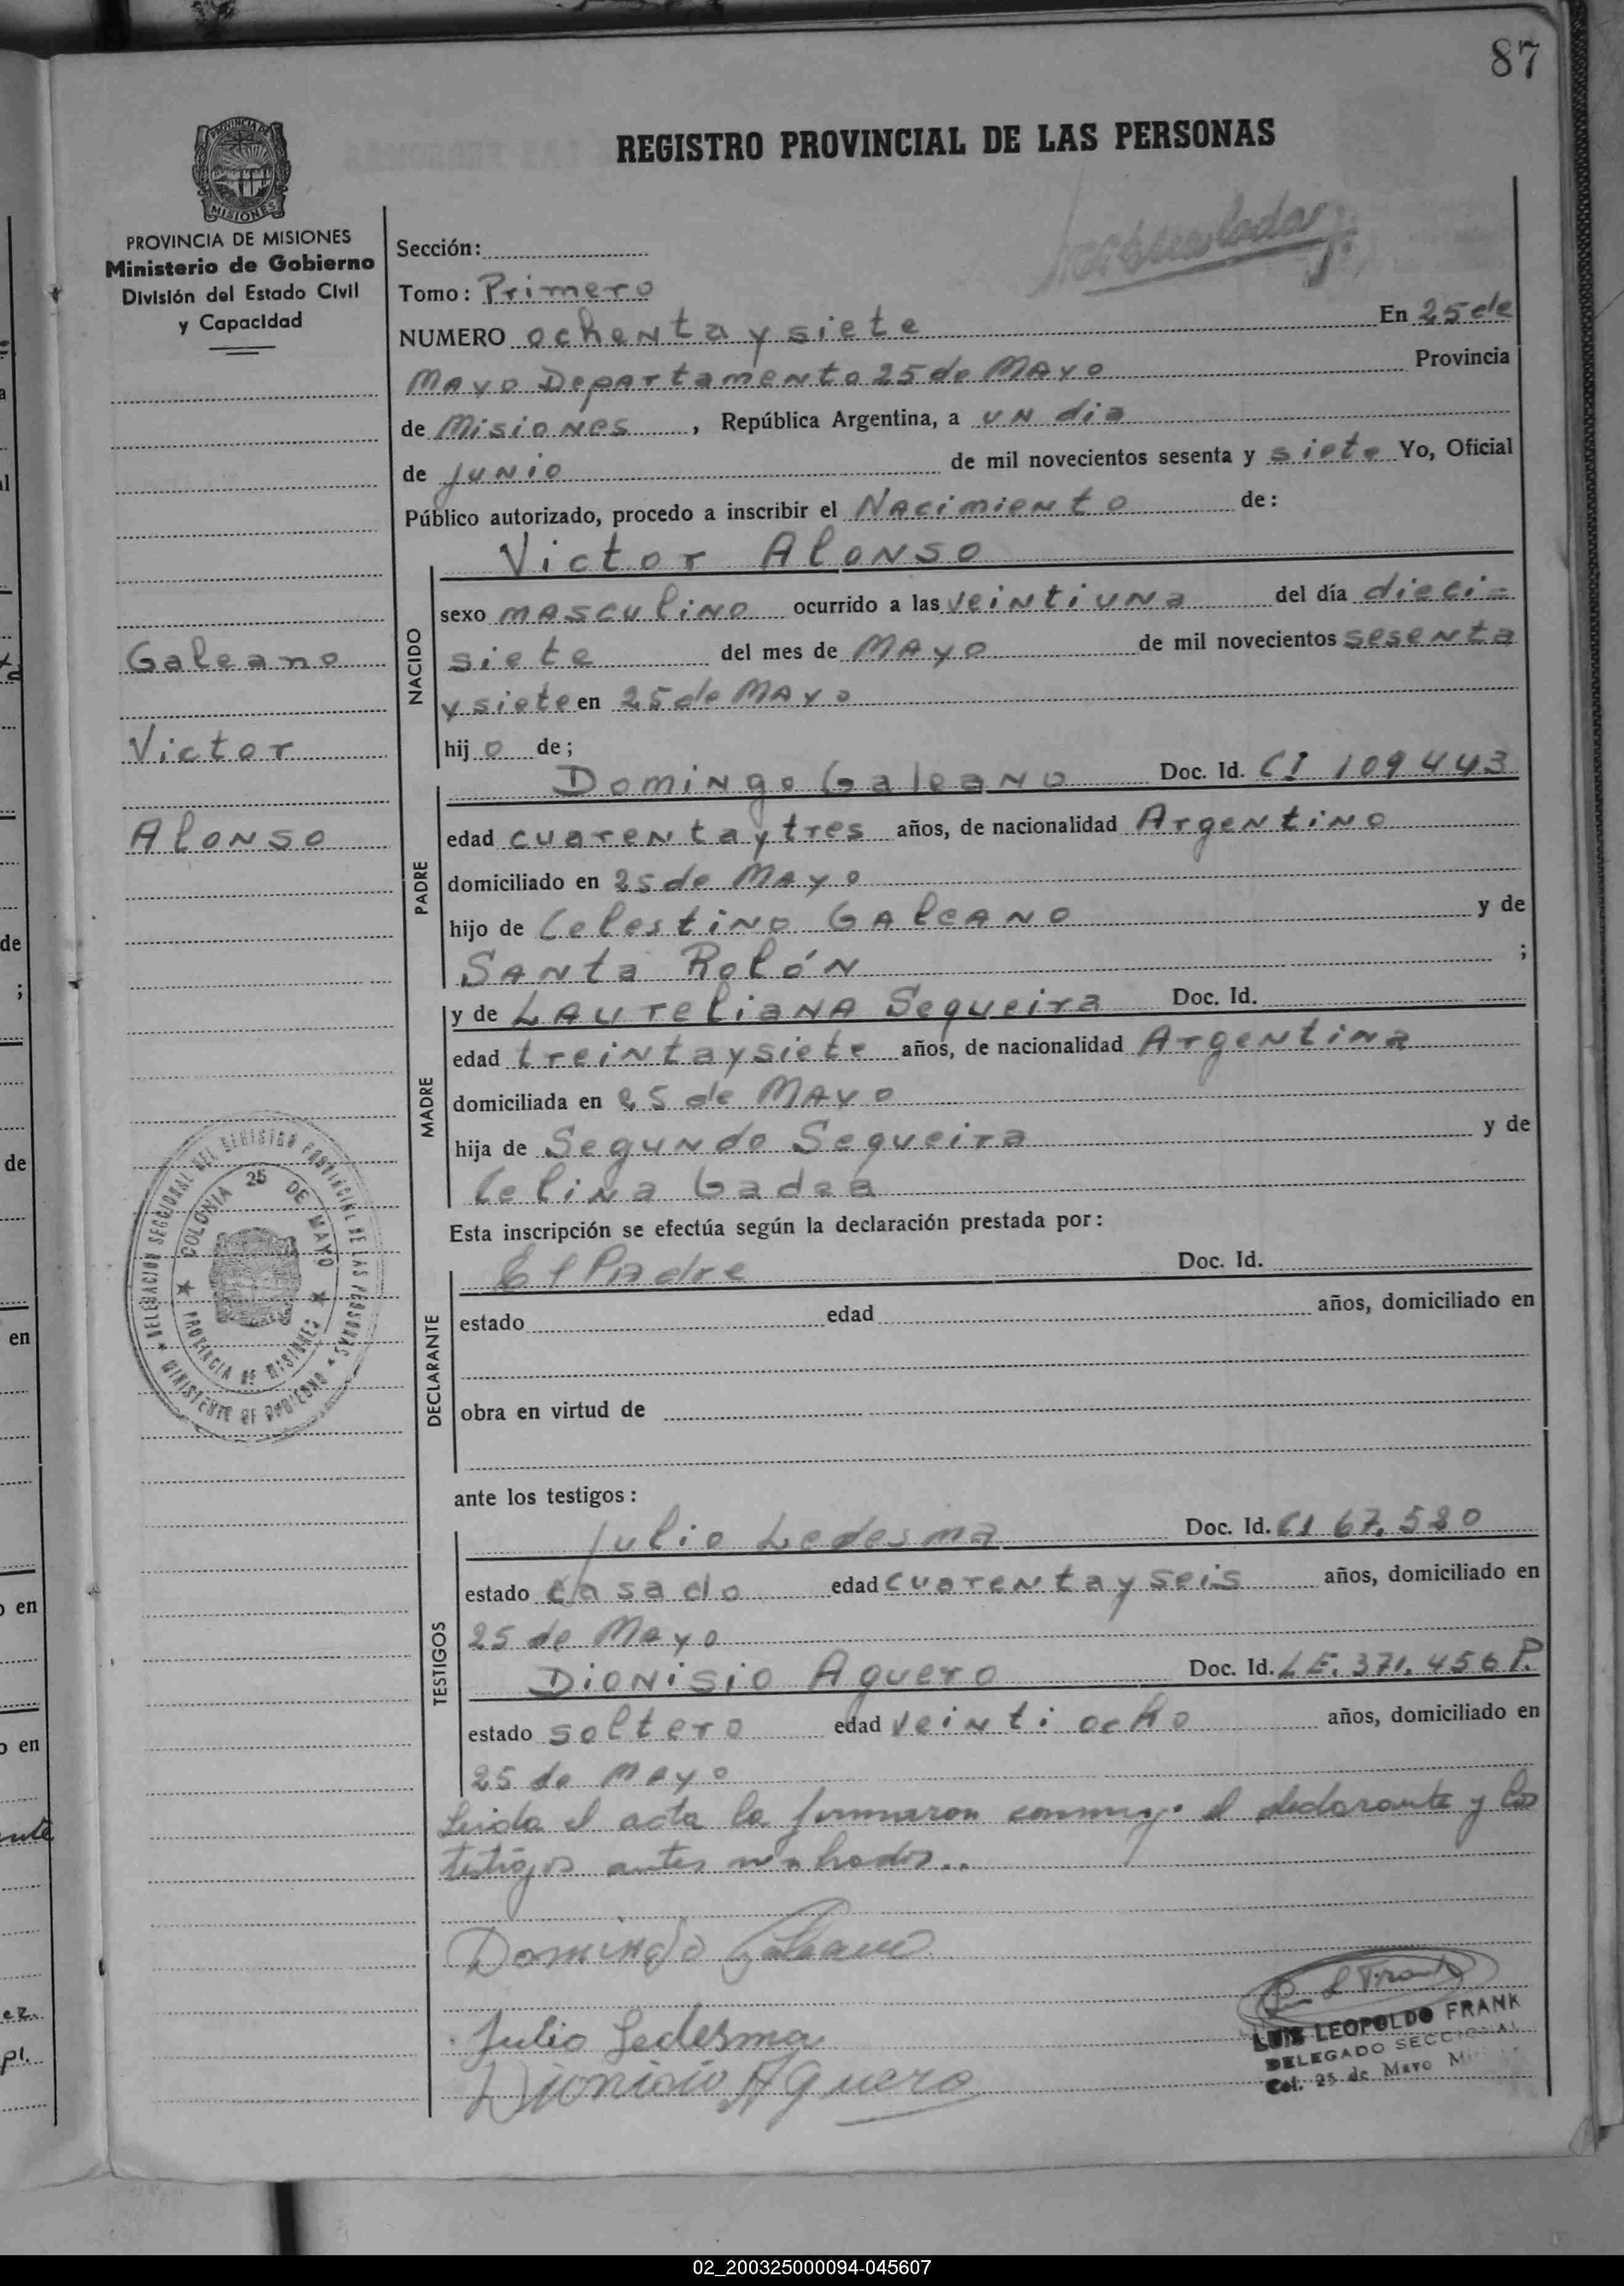 87
REGISTRO PROVINCIAL DE LAS PERSONAS
PROVINCIA DE MISIONES
PROVINCIA DE MISIONES
Ministerio de Gobierno
División del Estado Civil
y Capacidad
Galeano
Victor
Alonso
DELEGACION SECCIONAL DEL REGISTRO PROVINCIAL DE LAS PERSONAS
MINISTERIO DE GOBIERNO
COLONIA 25 DE MAYO
PROVINCIA DE MISIONES
Sección:
Tomo: Primero
NUMERO ochenta y siete En 25 de
Mayo Departamento 25 de Mayo Provincia
de Misiones, República Argentina, a un dia
de junio de mil novecientos sesenta y siete Yo, Oficial
Público autorizado, procedo a inscribir el Nacimiento de:
Victor Alonso
NACIDO
sexo masculino ocurrido a las veintiuna del día dieci=
siete del mes de Mayo de mil novecientos sesenta
y siete en 25 de Mayo
hijo de;
Domingo Galeano Doc. Id. CI 109443
PADRE
edad cuarenta y tres años, de nacionalidad Argentino
domiciliado en 25 de Mayo
hijo de Celestino Galeano y de
Santa Rolón ;
y de Laureliana Sequeira Doc. Id.
MADRE
edad treinta y siete años, de nacionalidad Argentina
domiciliada en 25 de Mayo
hija de Segundo Sequeira y de
Celina Gadea
Esta inscripción se efectúa según la declaración prestada por:
El Padre Doc. Id.
DECLARANTE
estado edad años, domiciliado en
obra en virtud de
ante los testigos:
Julio Ledesma Doc. Id. CI 67.520
TESTIGOS
estado casado edad cuarenta y seis años, domiciliado en
25 de Mayo
Dionisio Aguero Doc. Id. LE. 371.456 P.
estado soltero edad veinti ocho años, domiciliado en
25 de Mayo
Leida el acta la firmaron conmigo el declarante y los
testigos antes nombrados..
Domingo Galeano
Julio Ledesma
Dionisio Aguero
LUIS LEOPOLDO FRANK
DELEGADO SECCIONAL
Col. 25 de Mayo
02_200325000094-045607